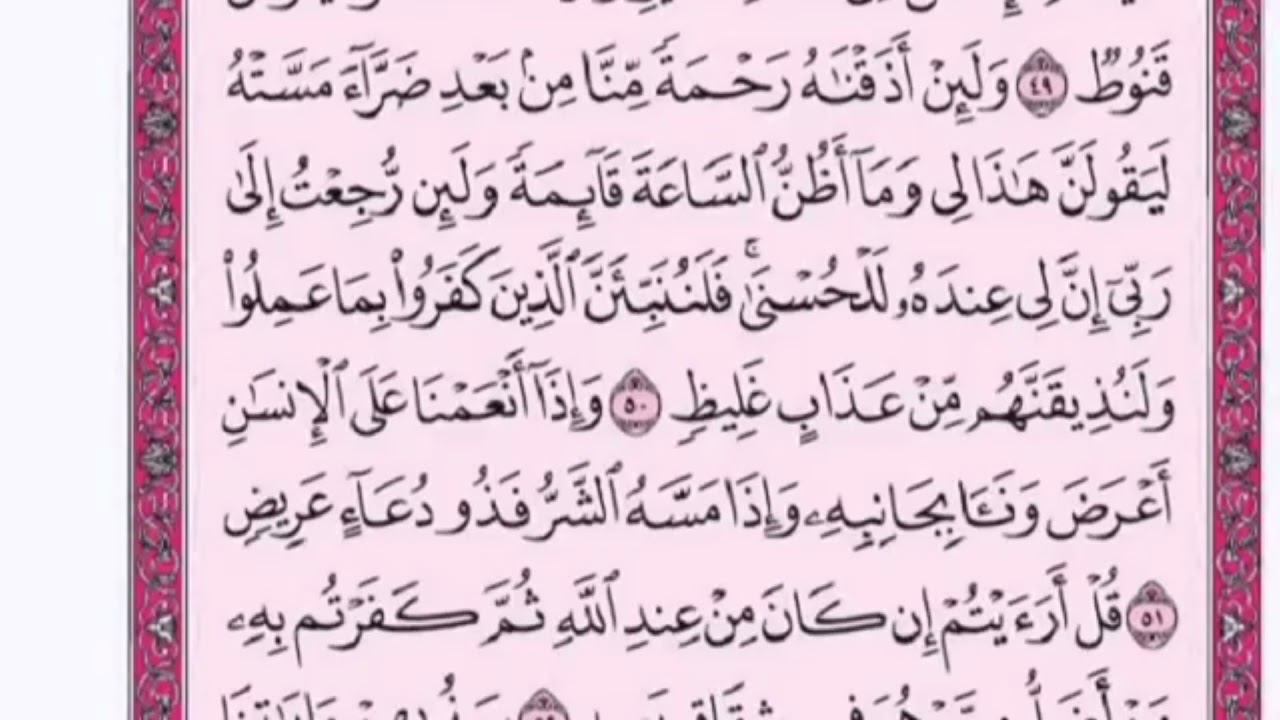 قَنُوطٌ ٤٩ وَلَئِنْ أَذَقْنَٰهُ رَحْمَةً مِّنَّا مِنۢ بَعْدِ ضَرَّآءَ مَسَّتْهُ
لَيَقُولَنَّ هَٰذَا لِى وَمَآ أَظُنُّ ٱلسَّاعَةَ قَآئِمَةً وَلَئِن رُّجِعْتُ إِلَىٰ
رَبِّىٓ إِنَّ لِى عِندَهُۥ لَلْحُسْنَىٰ ۚ فَلَنُنَبِّئَنَّ ٱلَّذِينَ كَفَرُوا۟ بِمَا عَمِلُوا۟
وَلَنُذِيقَنَّهُم مِّنْ عَذَابٍ غَلِيظٍ ٥٠ وَإِذَآ أَنْعَمْنَا عَلَى ٱلْإِنسَٰنِ
أَعْرَضَ وَنَـَٔا بِجَانِبِهِۦ وَإِذَا مَسَّهُ ٱلشَّرُّ فَذُو دُعَآءٍ عَرِيضٍ
٥١ قُلْ أَرَءَيْتُمْ إِن كَانَ مِنْ عِندِ ٱللَّهِ ثُمَّ كَفَرْتُم بِهِۦ